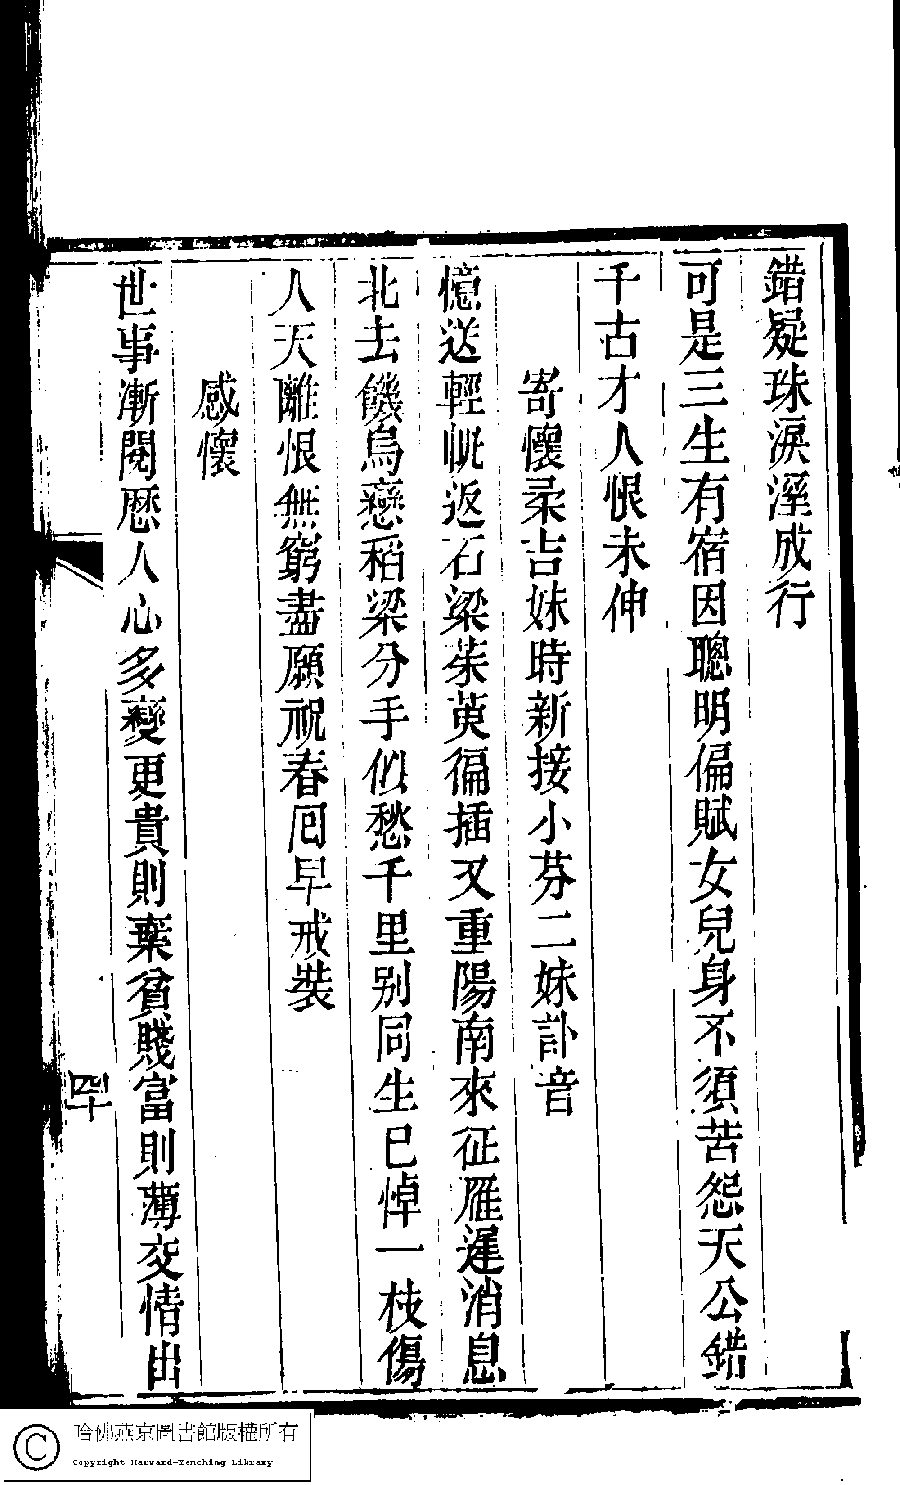 錯疑珠淚溼成行
可是三生有宿因聰明偏賦女兒身不須苦怨天公錯
千古才人恨未伸
寄懷采吉妹時新接小芬二妹訃音
憶送輕帆返石梁茱萸徧插又重陽南來征雁遲消息
北去饑烏戀稻梁分手似愁千里別同生已悼一枝傷
人天離恨無窮盡願祝春囘早戒裝
感懷
世事漸閱歷人心多變更貴則棄貧賤富則薄交情出
四十
哈佛燕京圖書館版權所有
Copyright Harvard-Yenching Library